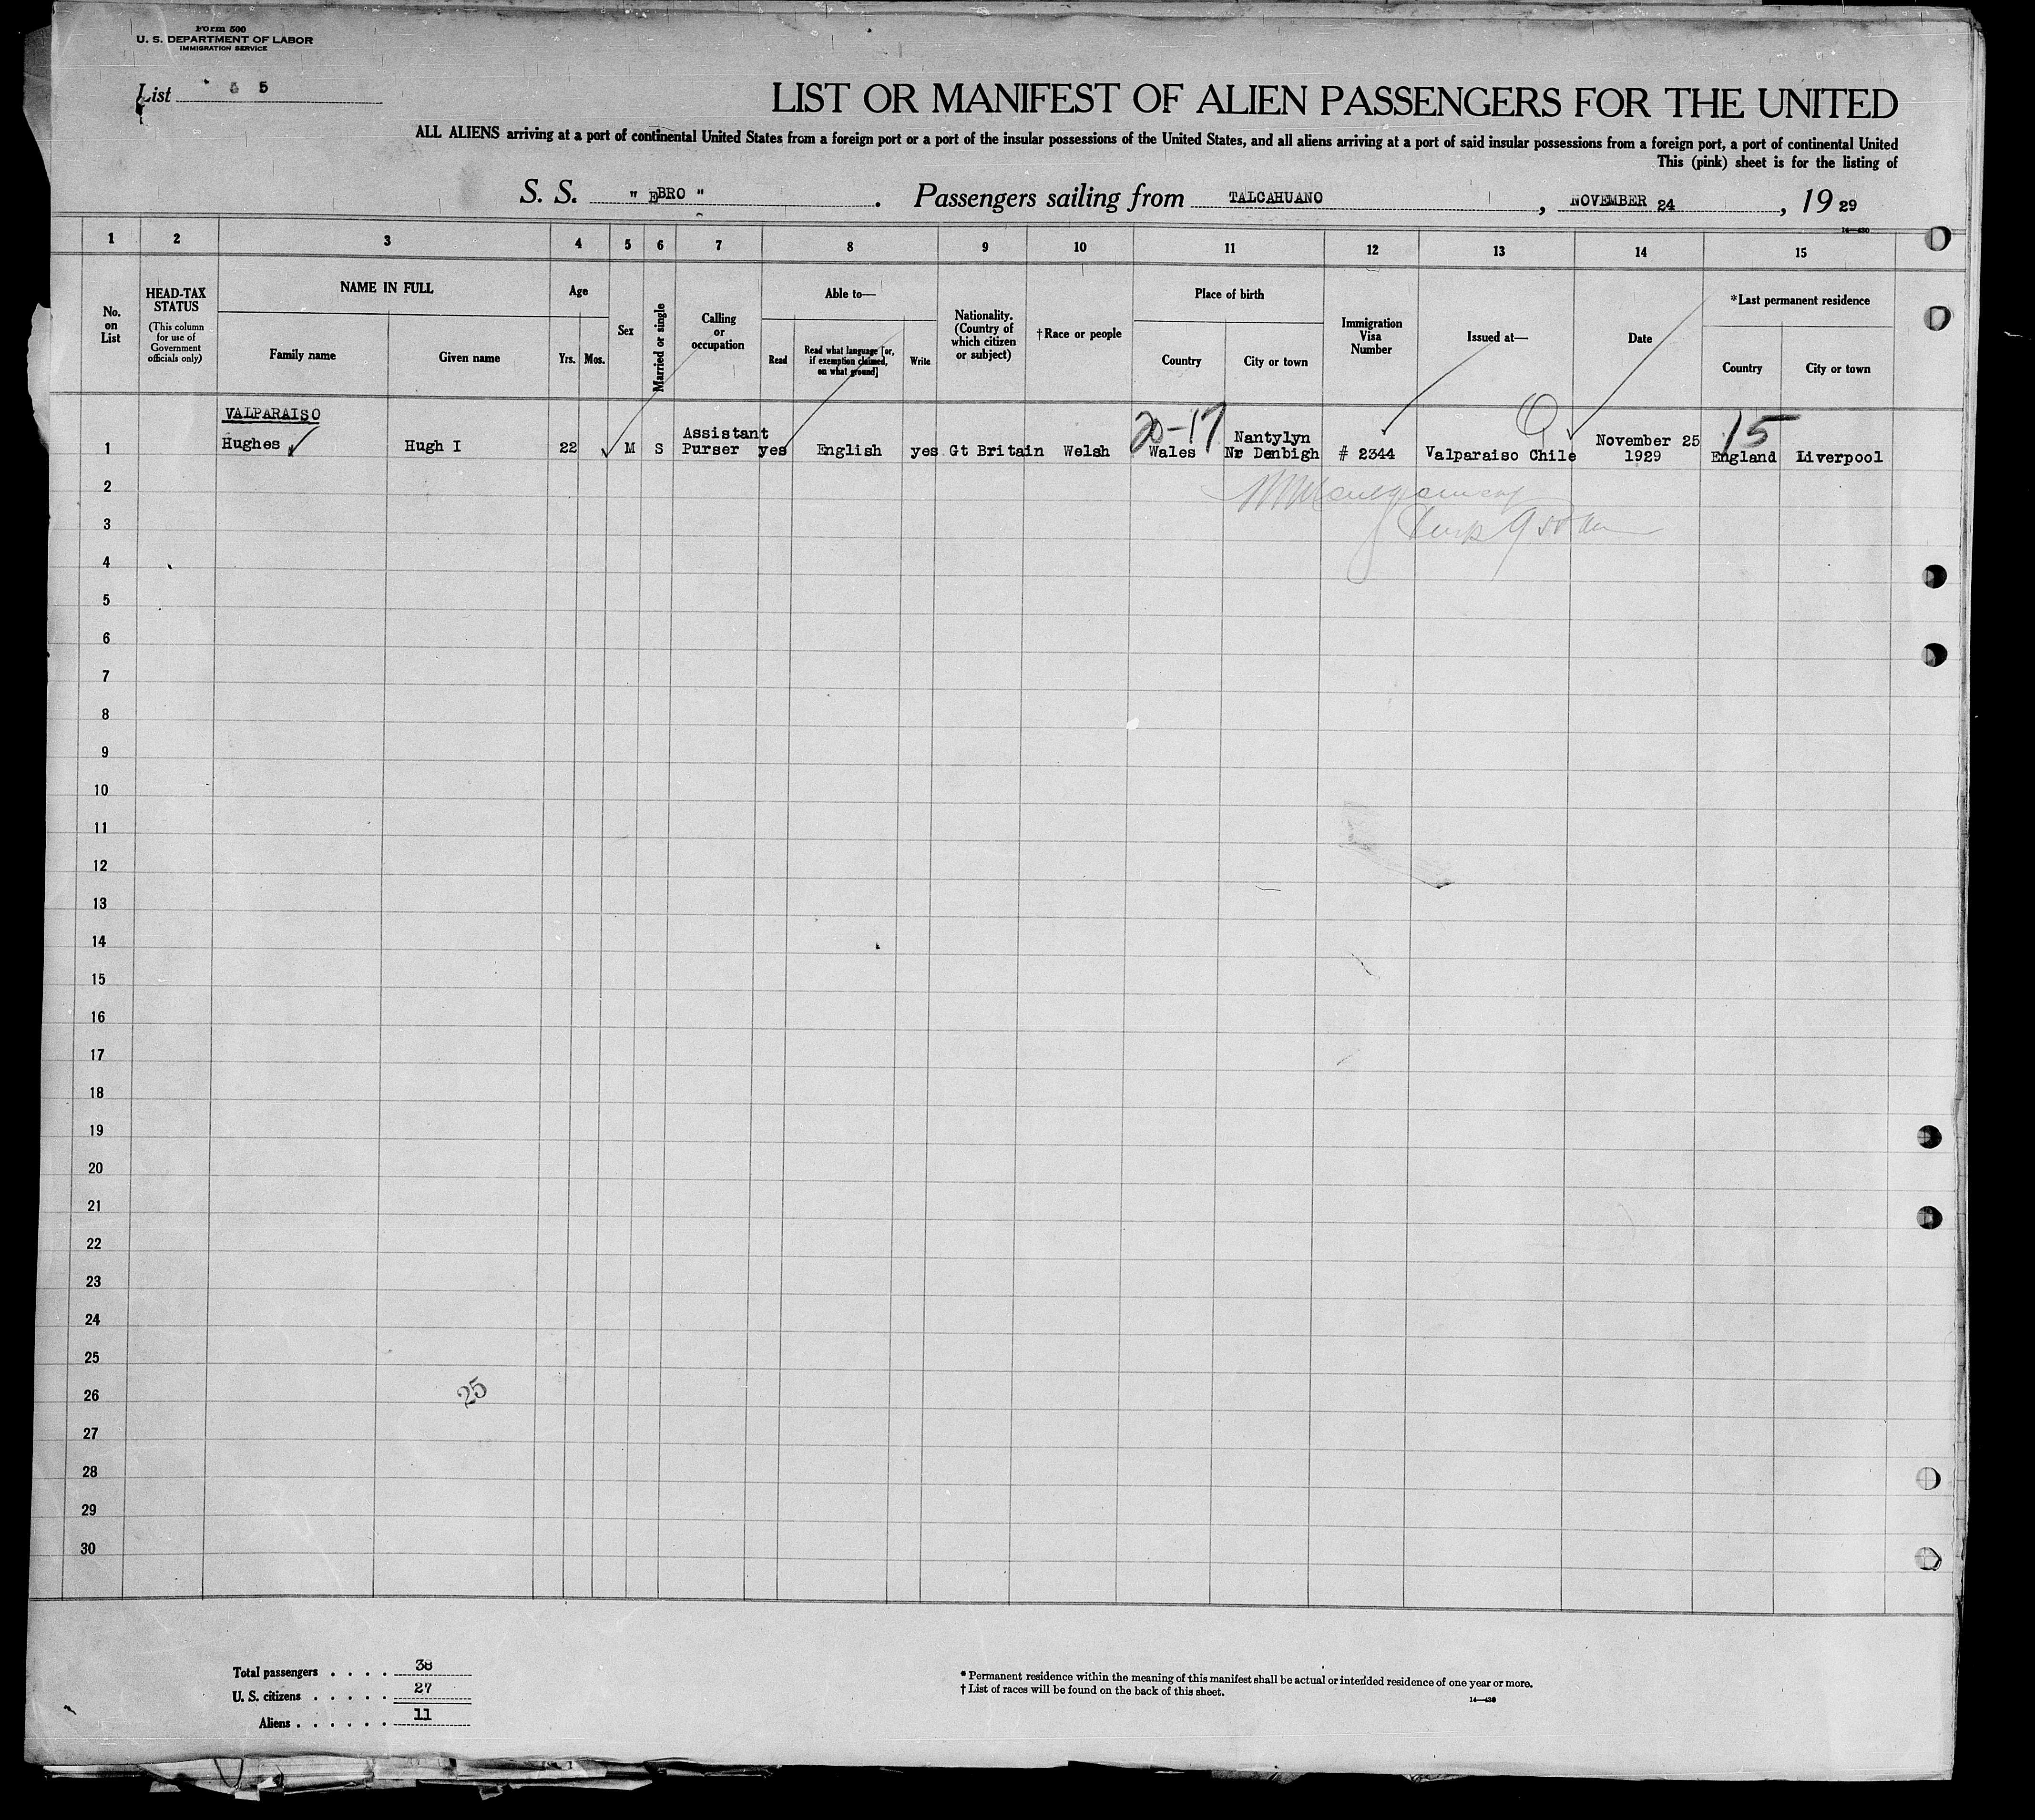 Form 500
U. S. DEPARTMENT OF LABOR
IMMIGRATION SERVICE
List 5
LIST OR MANIFEST OF ALIEN PASSENGERS FOR THE UNITED
ALL ALIENS arriving at a port of continental United States from a foreign port or a port of the insular possessions of the United States, and all aliens arriving at a port of said insular possessions from a foreign port, a port of continental United
This (pink) sheet is for the listing of
S. S. " EBRO " . Passengers sailing from TALCAHUANO , NOVEMBER 24 , 19 29
14—430
1 2 3 4 5 6 7 8 9 10 11 12 13 14 15
No. on List
HEAD-TAX STATUS
(This column for use of Government officials only)
NAME IN FULL
Family name
Given name
Age
Yrs.
Mos.
Sex
Married or single
Calling or occupation
Able to—
Read
Read what language [or, if exemption claimed, on what ground]
Write
Nationality. (Country of which citizen or subject)
†Race or people
Place of birth
Country
City or town
Immigration Visa Number
Issued at—
Date
*Last permanent residence
Country
City or town
VALPARAISO
20-17
15
1 Hughes Hugh I 22 M S Assistant Purser yes English yes Gt Britain Welsh Wales Nantylyn Nr Denbigh # 2344 Valparaiso Chile November 25 1929 England Liverpool
2
3
4
5
6
7
8
9
10
11
12
13
14
15
16
17
18
19
20
21
22
23
24
25
26
25
27
28
29
30
Total passengers . . . . 38
U. S. citizens . . . . . 27
Aliens . . . . . . 11
* Permanent residence within the meaning of this manifest shall be actual or intended residence of one year or more.
† List of races will be found on the back of this sheet.
14—430